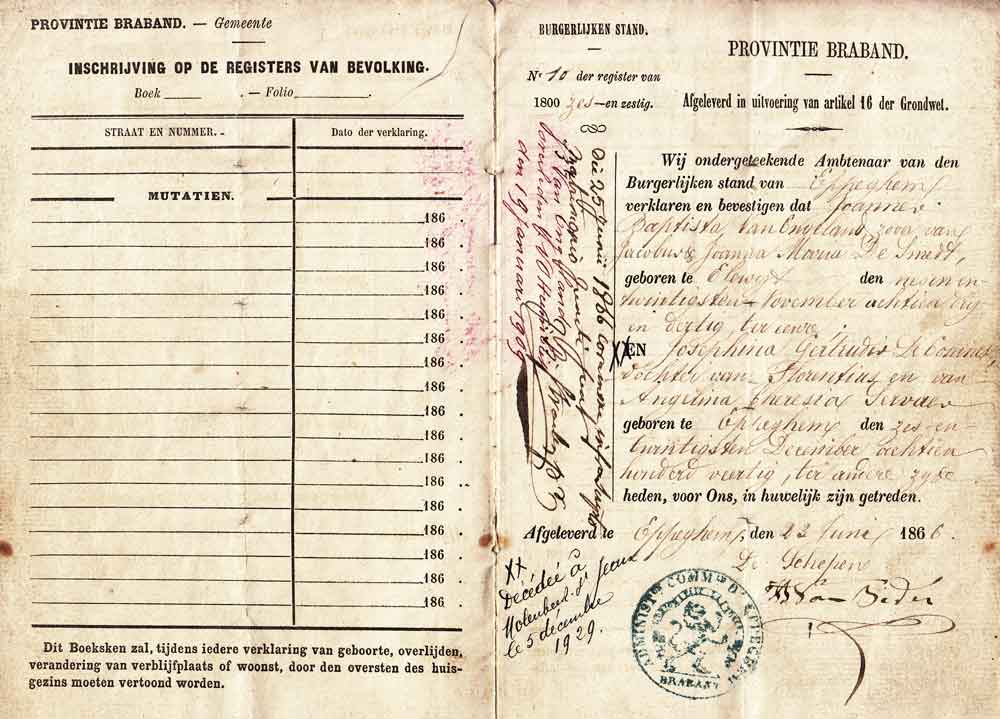 PROVINTIE BRABAND. — Gemeente
INSCHRIJVING OP DE REGISTERS VAN BEVOLKING.
Boek . — Folio .
STRAAT EN NUMMER. - Dato der verklaring.
MUTATIEN.
186 .
186 .
186 .
186 .
186 .
186 .
186 .
186 .
186 .
186 .
186 .
186 .
186 .
186 .
186 .
186 .
186 .
Dit Boeksken zal, tijdens iedere verklaring van geboorte, overlijden,
verandering van verblijfplaats of woonst, door den oversten des huis-
gezins moeten vertoond worden.
BURGERLIJKEN STAND.
Nr 10 der register van
1800 zes—en zestig.
PROVINTIE BRABAND.
Afgeleverd in uitvoering van artikel 16 der Grondwet.
Wij ondergeteekende Ambtenaar van den
Burgerlijken stand van Eppeghem
verklaren en bevestigen dat Joannes
Baptista Van Engeland, zoon van
Jacobus & Joanna Maria De Smedt,
geboren te Elewyt den negen en
twintigsten November achtien
en dertig, ter eenre,
XX EN Josephina Gertrudis De
dochter van Florentius en van
Angelina Theresia Servaes
geboren te Eppeghem den zes en
twintigsten December achtien
honderd veertig, ter andere zyde
heden, voor Ons, in huwelijk zijn getreden.
Afgeleverd te Eppeghem, den 22 Juni 1866.
De Schepen
Die 25 Junii 1866 coram me infrascripto
matrimonio juncti
J B Van Engeland
den 19 januari 1909
XX
Décédée à
Molenbeek-St Jean
le 5 décembre
1929.
ADMINISTon COMMle D'EPPEGHEM
BRABANT